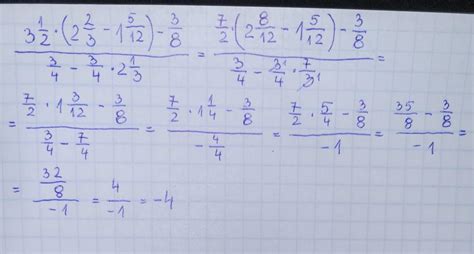 \frac{3\frac{1}{2} \cdot (2\frac{2}{3} - 1\frac{5}{12}) - \frac{3}{8}}{\frac{3}{4} - \frac{3}{4} \cdot 2\frac{1}{3}} = \frac{\frac{7}{2} \cdot (2\frac{8}{12} - 1\frac{5}{12}) - \frac{3}{8}}{\frac{3}{4} - \frac{3^1}{4} \cdot \frac{7}{3^1}} =
= \frac{\frac{7}{2} \cdot 1\frac{3}{12} - \frac{3}{8}}{\frac{3}{4} - \frac{7}{4}} = \frac{\frac{7}{2} \cdot 1\frac{1}{4} - \frac{3}{8}}{-\frac{4}{4}} = \frac{\frac{7}{2} \cdot \frac{5}{4} - \frac{3}{8}}{-1} = \frac{\frac{35}{8} - \frac{3}{8}}{-1} =
= \frac{\frac{32}{8}}{-1} = \frac{4}{-1} = -4